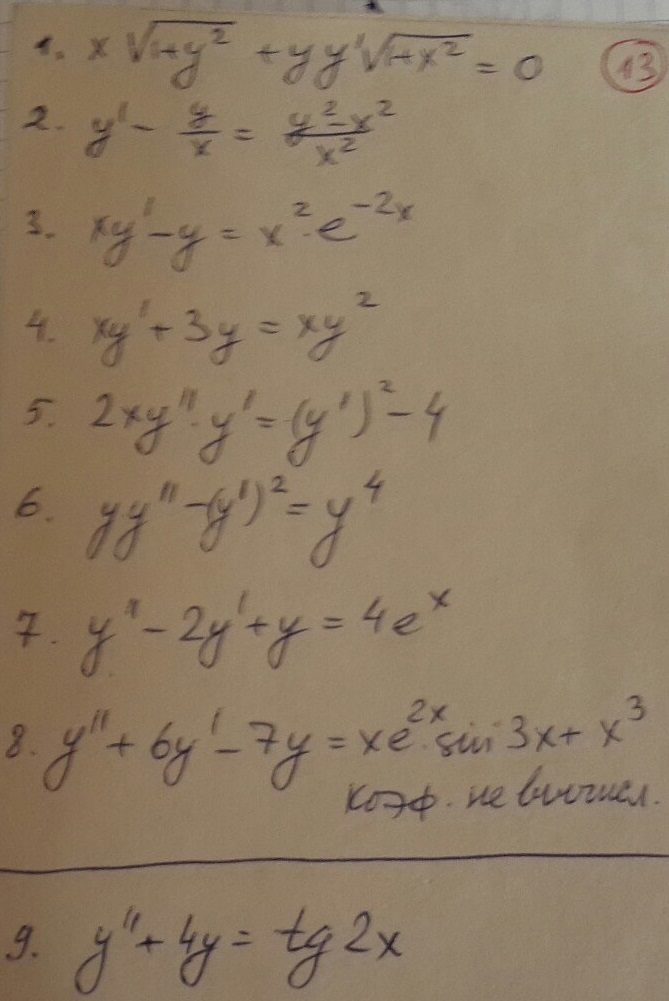 1. x √(1+y²) + yy' √(1+x²) = 0 (13)
2. y' - y/x = (y²-x²)/x²
3. xy' - y = x² · e^(-2x)
4. xy' + 3y = xy²
5. 2xy'' · y' = (y')² - 4
6. yy'' - (y')² = y⁴
7. y'' - 2y' + y = 4e^x
8. y'' + 6y' - 7y = xe^(2x) · sin 3x + x³
коэф. не вычисл.
9. y'' + 4y = tg 2x